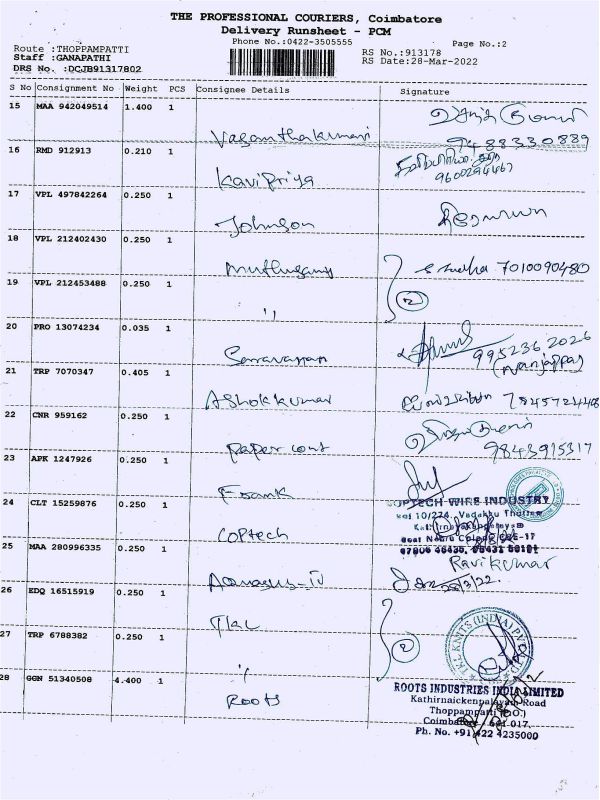 THE PROFESSIONAL COURIERS, Coimbatore
Delivery Runsheet - PCM
Phone No.:0422-3505555
Page No.:2
Route :THOPPAMPATTI
Staff :GANAPATHI
DRS No. :DCJB91317802
RS No.:913178
RS Date:28-Mar-2022
S No Consignment No Weight PCS Consignee Details Signature
15 MAA 942049514 1.400 1 Vasanthakumari 9488330839
16 RMD 912913 0.210 1 Kavipriya 9600294467
17 VPL 497842264 0.250 1 Johnson
18 VPL 212402430 0.250 1 Muthusamy 7010090480
19 VPL 212453488 0.250 1 "
20 PRO 13074234 0.035 1 Saravanan 995236 2026
(Nanjappa)
21 TRP 7070347 0.405 1 Ashokkumar
22 CNR 959162 0.250 1 Paper cont 9843915317
23 APK 1247926 0.250 1 Frank
24 CLT 15259876 0.250 1 Coptech
COPTECH WIRE INDUSTRY
25 MAA 280996335 0.250 1 Ravikumar
26 EDQ 16515919 0.250 1
27 TRP 6788382 0.250 1 "
KNITS (INDIA) PVT
28 GGN 51340508 4.400 1 Roots
ROOTS INDUSTRIES INDIA LIMITED
Kathirnaickenpalayam Road
Thoppampatti (P.O.)
Coimbatore - 641 017.
Ph. No. +91 422 4235000